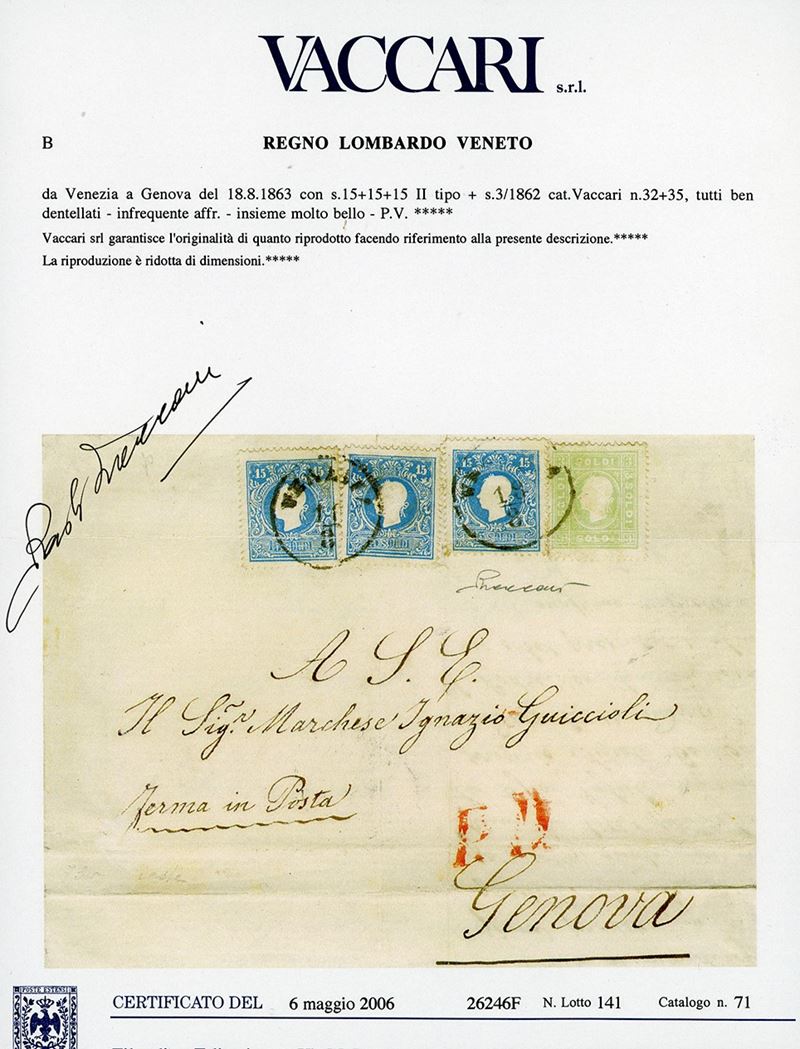 VACCARI s.r.l.
B REGNO LOMBARDO VENETO
da Venezia a Genova del 18.8.1863 con s.15+15+15 II tipo + s.3/1862 cat.Vaccari n.32+35, tutti ben
dentellati - infrequente affr. - insieme molto bello - P.V. *****
Vaccari srl garantisce l'originalità di quanto riprodotto facendo riferimento alla presente descrizione.*****
La riproduzione è ridotta di dimensioni.*****
15 15 15 15 SOLDI
15 SOLDI SOLDI SOLDI
Vaccari
A S. E.
Il Sigr. Marchese Ignazio Guiccioli
Ferma in Posta
P.D
Genova
POSTE ESTENSI
CERTIFICATO DEL 6 maggio 2006 26246F N. Lotto 141 Catalogo n. 71